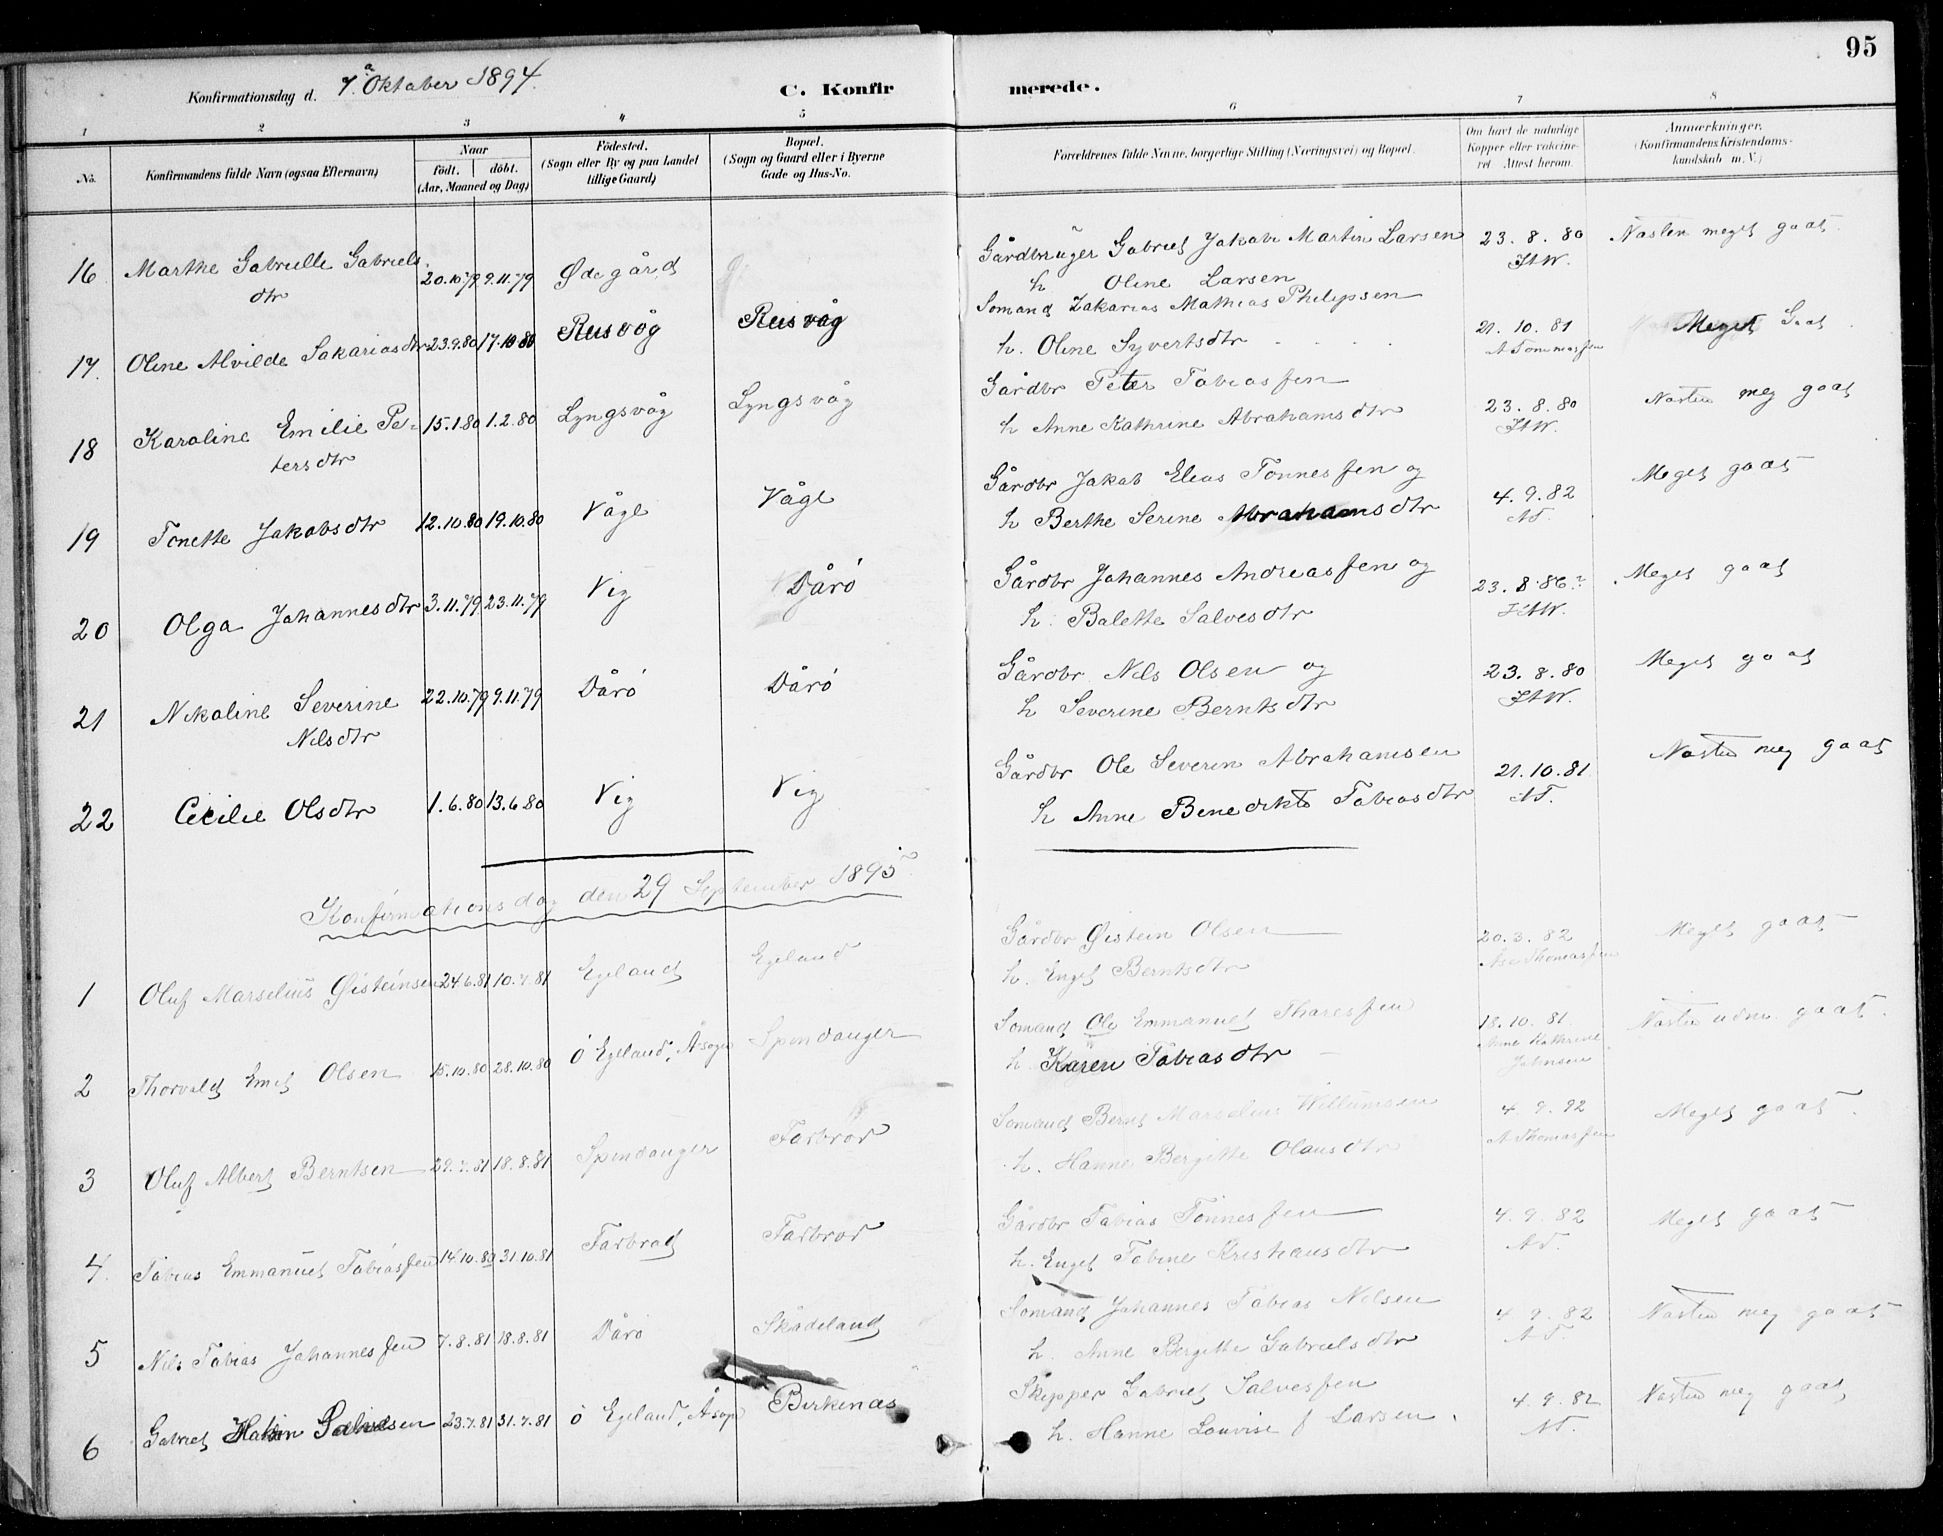 95
Konfirmationsdag d. 7.a Oktober 1894.
C. Konfirmerede.
1 2 3 4 5 6 7 8
No.
Konfirmandens fulde Navn (ogsaa Efternavn)
Naar
födt. döbt.
(Aar, Maaned og Dag)
Födested.
(Sogn eller By og paa Landet tillige Gaard)
Bopæl.
(Sogn og Gaard eller i Byerne Gade og Hus-No.
Forældrenes fulde Navne, borgerlige Stilling (Næringsvei) og Bopæl.
Om havt de naturlige Kopper eller vaccineret. Attest herom.
Anmærkninger.
(Konfirmandens Kristendomskundskab m. V.)
16 Marthe Gabrielle Gabriels- 20.10.79 9.11.79 Ødegård Gårdbruger Gabriel Jakob Martin Larsen 23.8.80 Næsten meget godt
dtr h. Oline Larsen
17. Oline Alvilde Sakariasdtr 23.9.80 17.10.80 Rusvåg Rusvåg Sømand Zakarias Mathias Philipsen 21.10.81 Meget Godt
h. Oline Syvertsdtr A Tommasſen
18 Karoline Emilie Pe- 15.1.80 1.2.80 Lyngsvåg Lyngsvåg Gårdbr Peter Tobiasſen 23.8.80 Næsten meg godt
tersdtr h Anne Kathrine Abrahamsdtr
19 Tonette Jakobsdtr 12.10.80 19.10.80 Våge Våge Gårdbr Jakob Elias Tønnesſen og 4.9.82 Meget godt
h Berthe Serine Abrahamsdtr AT.
20 Olga Johannesdtr 3.11.79 23.11.79 Vig Dårø Gårdbr Johannes Andreasſen og 23.8.86? Meget godt
h. Balette Salvesdtr
21 Nikoline Severine 22.10.79 9.11.79 Dårø Dårø Gårdbr Nils Olsen og 23.8.80 Meget godt
Nilsdtr h Severine Berntsdtr
22 Cecilie Olsdtr 1.6.80 13.6.80 Vig Vig Gårdbr Ole Severin Abrahamsen 21.10.81 Næsten meg godt
h Anne Benedikte Tobiasdtr AT.
Konfirmationsdag den 29 September 1895
1 Oluf Marselius Øisteinsen 24.6.81 10.7.81 Egeland Egeland Gårdbr Øistein Olsen 20.3.82 Meget godt
h. Engel Berntsdtr Thomasſen
2 Thorvald Emil Olsen 15.10.80 28.10.80 Ø Egeland, Åsogn Spindanger Sømand Ole Emmanuel Tharesſen 18.10.81 Næsten udm. godt
h. Karen Tobiasdtr Anne Kathrine Johnsen
3 Oluf Albert Berntsen 29.7.81 18.8.81 Spindanger Farbrod Sømand Bernt Marselius Willumsen 4.9.92 Meget godt
h. Hanne Bergitte Olausdtr A Thomasſen
4. Tobias Emmanuel Tobiasſen 14.10.80 31.10.81 Farbrod Farbrod Gårdbr Tobias Tønnesſen 4.9.82 Meget godt
h. Engel Tobine Kristiansdtr AT.
5 Nils Tobias Johannesſen 7.8.81 18.8.81 Dårø Skådeland Sømand Johannes Tobias Nilsen 4.9.82 Næsten meg godt
h. Anne Bergitte Gabrielsdtr AT
6 Gabriel 23.7.81 31.7.81 Ø Egeland, Åsogn Birkenæs Skipper Gabriel Salvesſen 4.9.82 Næsten meg godt
h. Hanne Louvise f Larsen. AT.